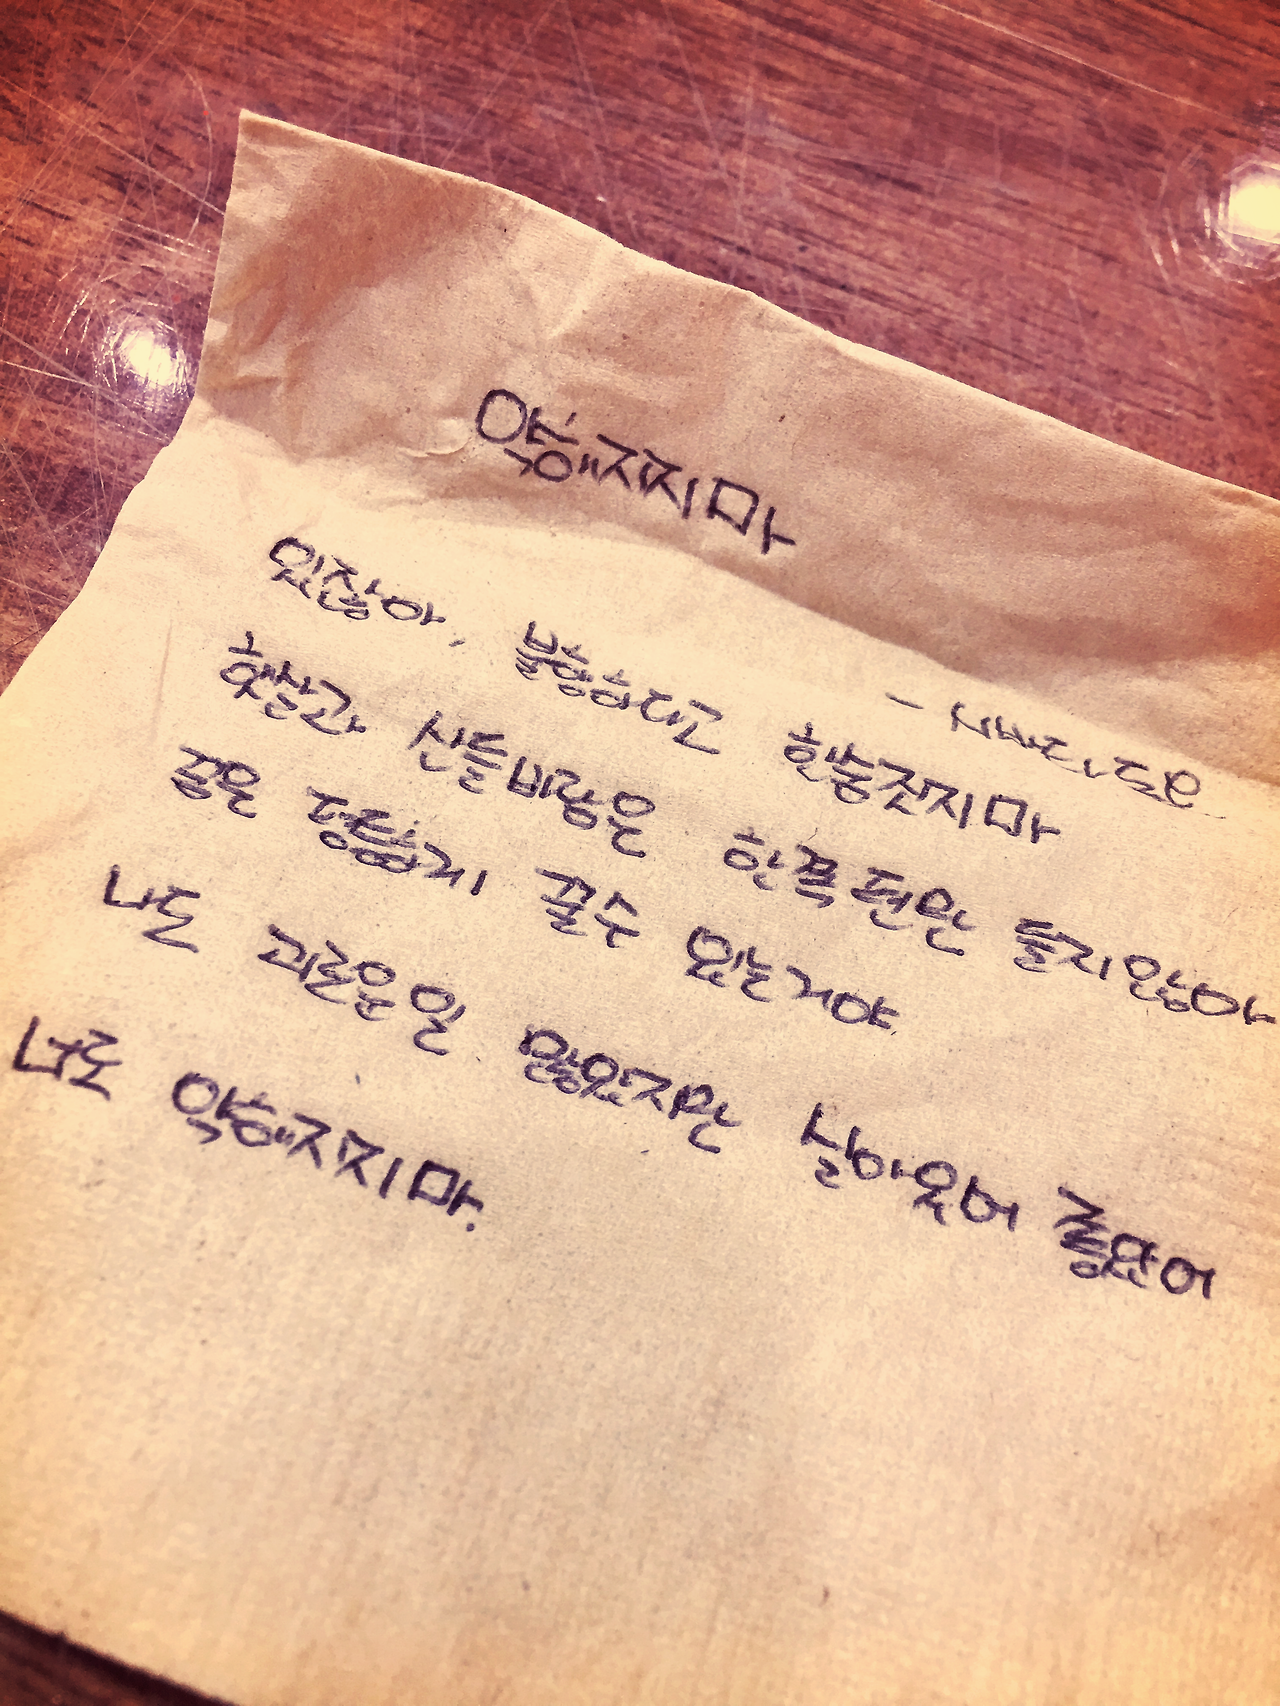 약해지지마
- 시바타도요
있잖아, 불행하다고 한숨짓지마
햇살과 산들바람은 한쪽 편만 들지않아
꿈은 평등하게 꿀수 있는거야
나도 괴로운일 많았지만 살아있어 좋았어
너도 약해지지마.